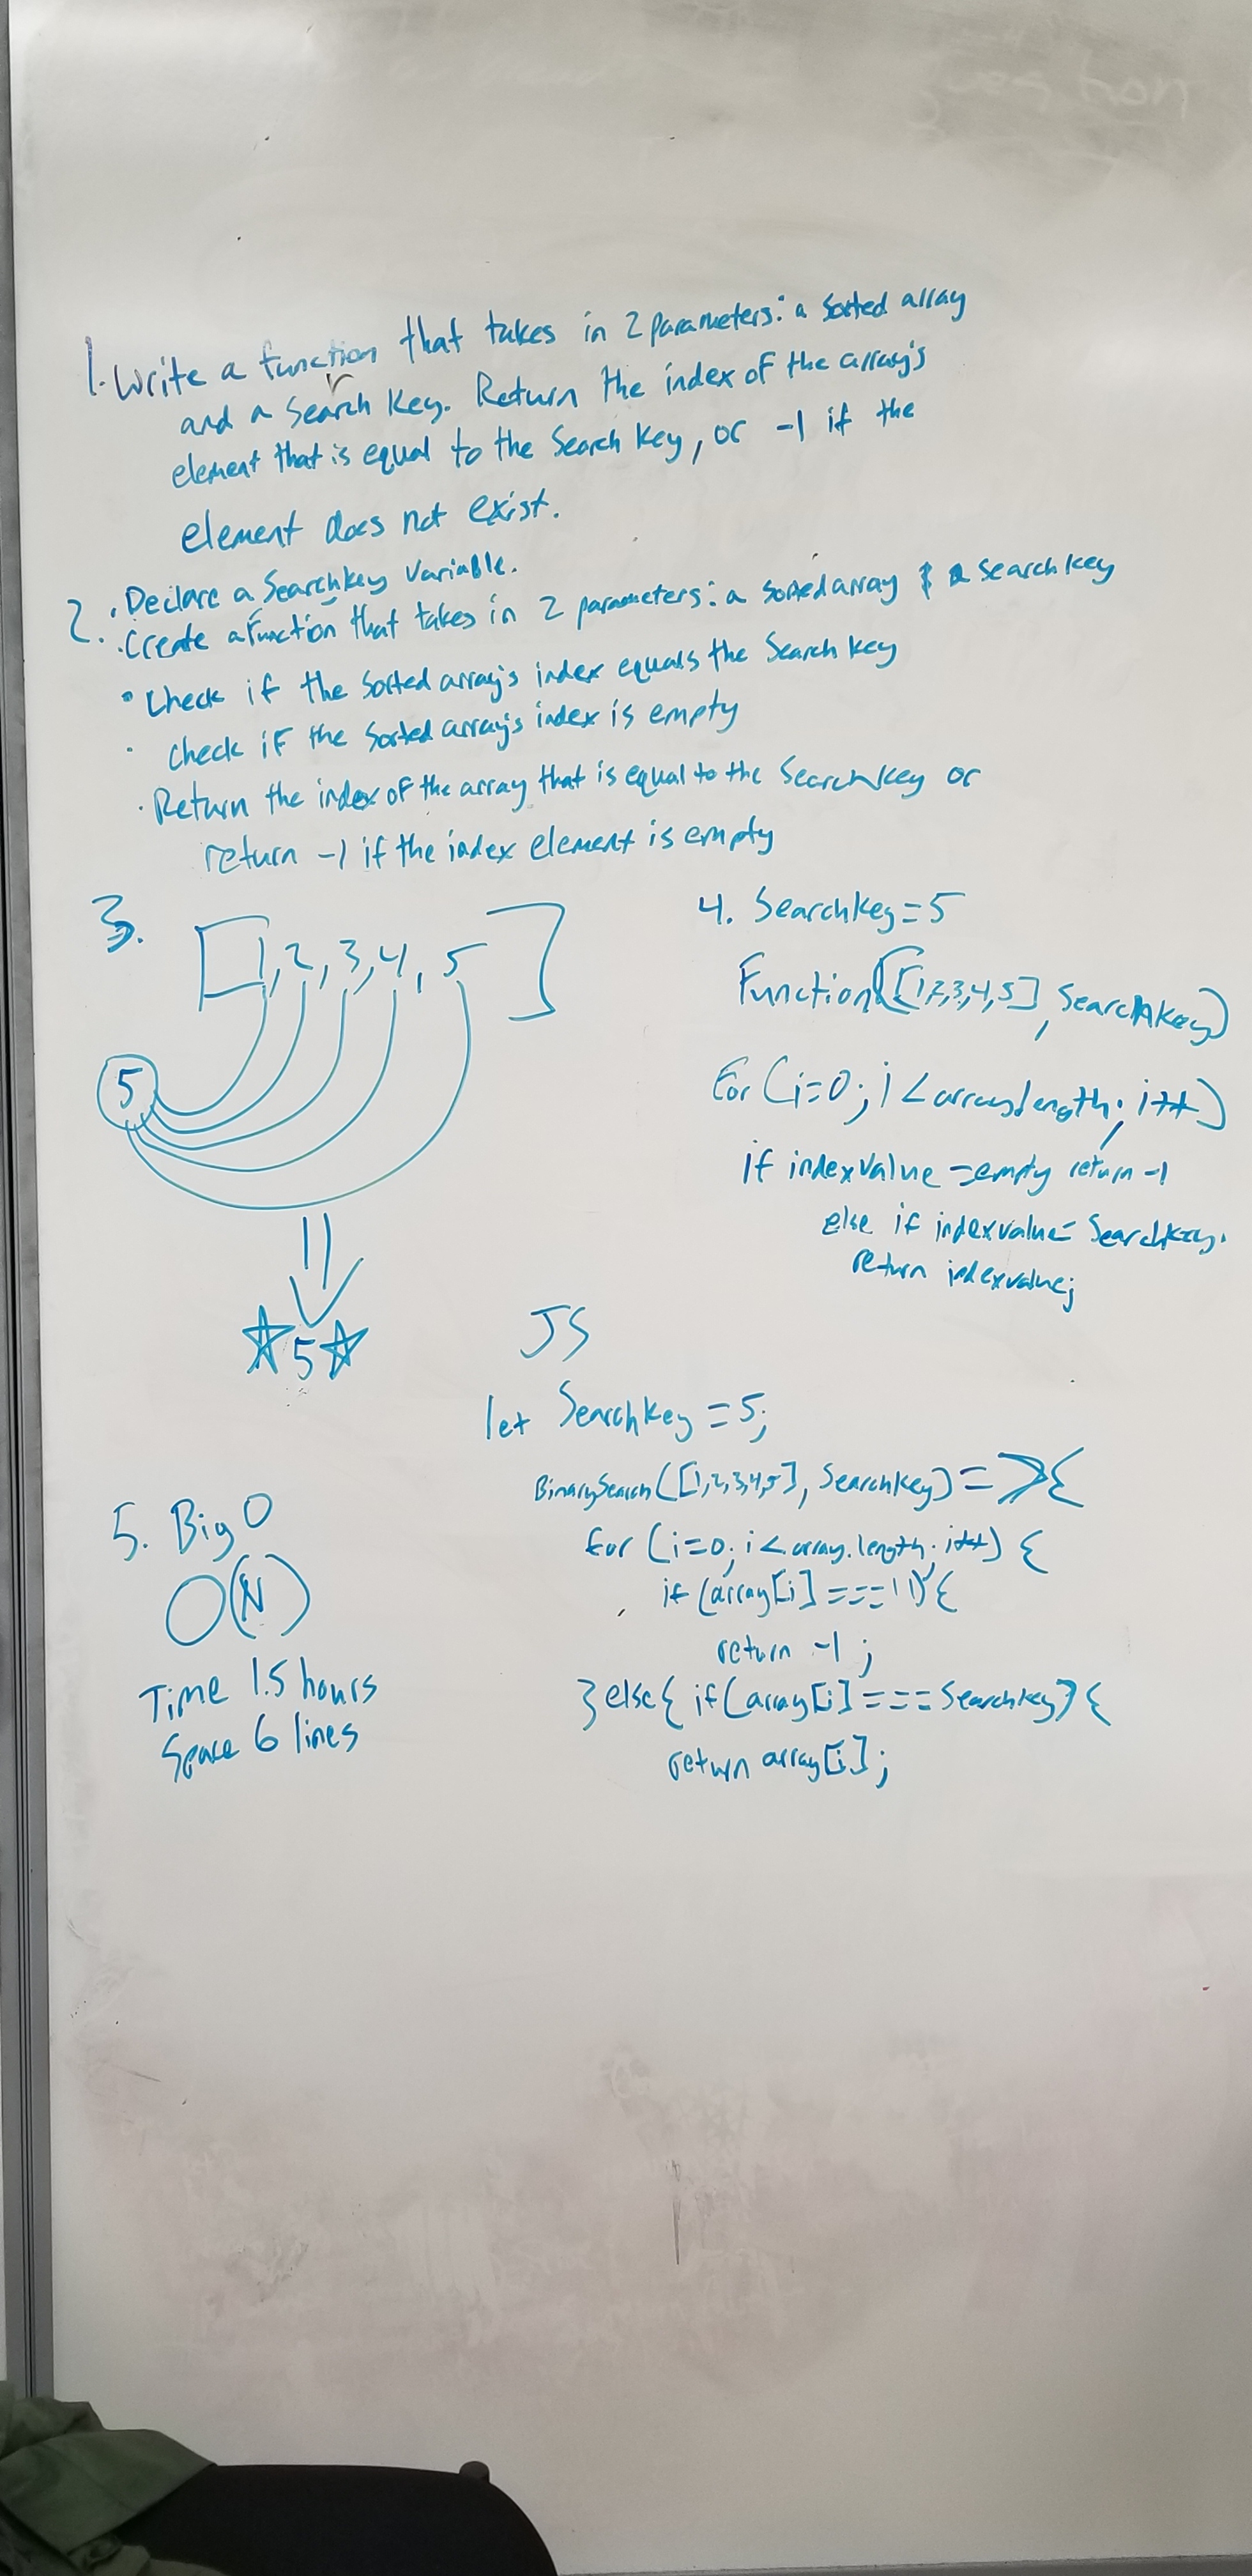 1. Write a function that takes in 2 parameters: a sorted array
and a Search Key. Return the index of the array's
element that is equal to the Search Key, or -1 if the
element does not exist.
2. · Declare a Searchkey Variable.
· Create a function that takes in 2 parameters: a sorted array & a searchkey
· Check if the sorted array's index equals the Search key
· Check if the sorted array's index is empty
· Return the index of the array that is equal to the Searchkey or
return -1 if the index element is empty
3.
[1, 2, 3, 4, 5]
5
☆5☆
4. Searchkey = 5
Function([1,2,3,4,5], Searchkey)
For (i=0; i < array.length; i++)
if indexvalue = empty return -1
else if indexvalue = Searchkey.
return indexvalue;
JS
let Searchkey = 5;
BinarySearch([1,2,3,4,5], Searchkey) => {
for (i=0; i < array.length; i++) {
if (array[i] === '') {
return -1;
} else { if (array[i] === Searchkey) {
return array[i];
5. Big O
O(N)
Time 1.5 hours
Space 6 lines